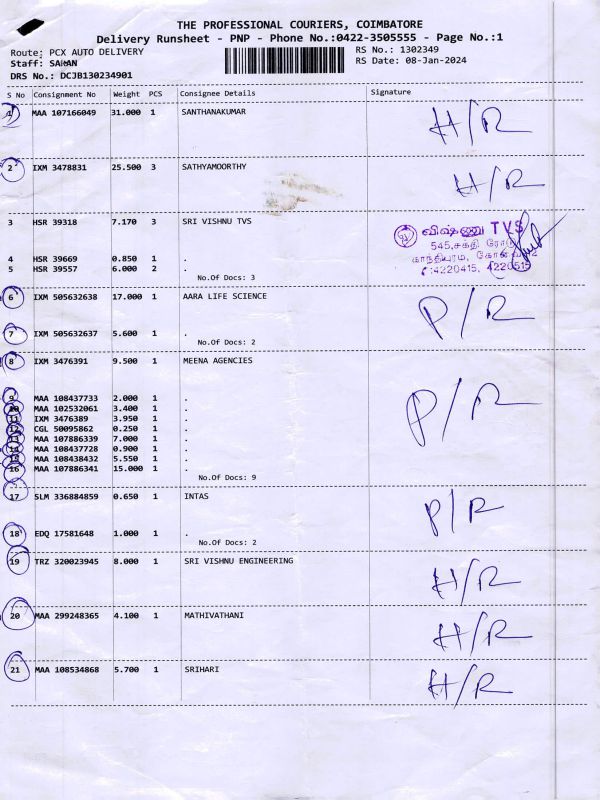 THE PROFESSIONAL COURIERS, COIMBATORE
Delivery Runsheet - PNP - Phone No.:0422-3505555 - Page No.:1
Route: PCX AUTO DELIVERY RS No.: 1302349
Staff: SARAN RS Date: 08-Jan-2024
DRS No.: DCJB130234901
S No Consignment No Weight PCS Consignee Details Signature
1 MAA 107166049 31.000 1 SANTHANAKUMAR H/R
2 IXM 3478831 25.500 3 SATHYAMOORTHY H/R
3 HSR 39318 7.170 3 SRI VISHNU TVS
விஷ்ணு TVS
545,சக்தி ரோடு
காந்திபுரம், கோவை-12
✆:4220415, 4220515
4 HSR 39669 0.850 1 .
5 HSR 39557 6.000 2 .
No.Of Docs: 3
6 IXM 505632638 17.000 1 AARA LIFE SCIENCE P/R
7 IXM 505632637 5.600 1 .
No.Of Docs: 2
8 IXM 3476391 9.500 1 MEENA AGENCIES P/R
9 MAA 108437733 2.000 1 .
10 MAA 102532061 3.400 1 .
11 IXM 3476389 3.950 1 .
12 CGL 50095862 0.250 1 .
13 MAA 107886339 7.000 1 .
14 MAA 108437728 0.900 1 .
15 MAA 108438432 5.550 1 .
16 MAA 107886341 15.000 1 .
No.Of Docs: 9
17 SLM 336884859 0.650 1 INTAS P/R
18 EDQ 17581648 1.000 1 .
No.Of Docs: 2
19 TRZ 320023945 8.000 1 SRI VISHNU ENGINEERING H/R
20 MAA 299248365 4.100 1 MATHIVATHANI H/R
21 MAA 108534868 5.700 1 SRIHARI H/R